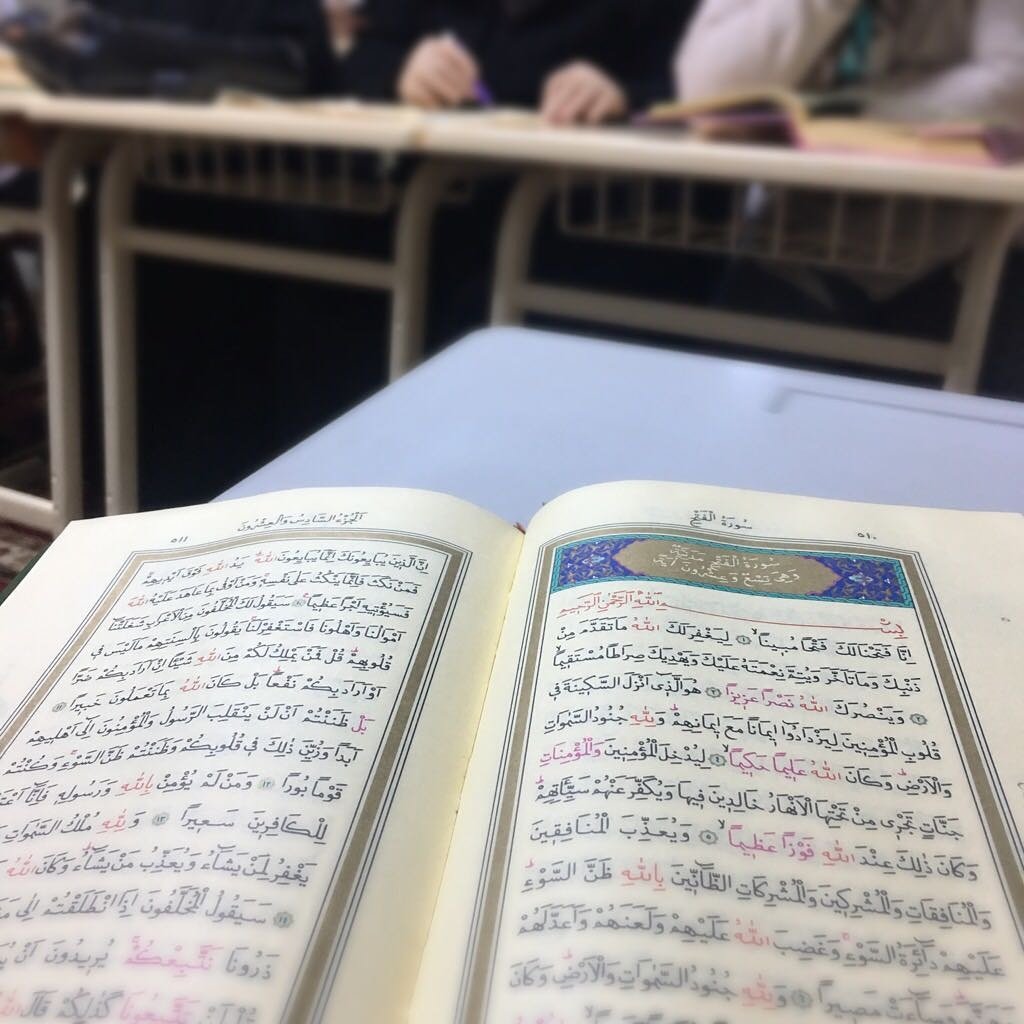 سُورَةُ الْفَتْحِ
٥١٠
سُورَةُ الْفَتْحِ مَدَنِيَّةٌ
وَهِيَ تِسْعٌ وَعِشْرُونَ اٰيَةً
بِسْمِ اللّٰهِ الرَّحْمٰنِ الرَّحِيمِ
اِنَّا فَتَحْنَا لَكَ فَتْحًا مُبِينًاۙ ﴿١﴾ لِيَغْفِرَ لَكَ اللّٰهُ مَا تَقَدَّمَ مِنْ
ذَنْبِكَ وَمَا تَاَخَّرَ وَيُتِمَّ نِعْمَتَهُ عَلَيْكَ وَيَهْدِيَكَ صِرَاطًا مُسْتَقِيمًاۙ
﴿٢﴾ وَيَنْصُرَكَ اللّٰهُ نَصْرًا عَزِيزًا ﴿٣﴾ هُوَ الَّذِٓي اَنْزَلَ السَّكِينَةَ فِي
قُلُوبِ الْمُؤْمِنِينَ لِيَزْدَادُٓوا اِيمَانًا مَعَ اِيمَانِهِمْۜ وَلِلّٰهِ جُنُودُ السَّمٰوَاتِ
وَالْاَرْضِۜ وَكَانَ اللّٰهُ عَلِيمًا حَكِيمًاۙ ﴿٤﴾ لِيُدْخِلَ الْمُؤْمِنِينَ وَالْمُؤْمِنَاتِ
جَنَّاتٍ تَجْرِي مِنْ تَحْتِهَا الْاَنْهَارُ خَالِدِينَ فِيهَا وَيُكَفِّرَ عَنْهُمْ سَيِّـَٔاتِهِمْۜ
وَكَانَ ذٰلِكَ عِنْدَ اللّٰهِ فَوْزًا عَظِيمًاۙ ﴿٥﴾ وَيُعَذِّبَ الْمُنَافِقِينَ
وَالْمُنَافِقَاتِ وَالْمُشْرِكِينَ وَالْمُشْرِكَاتِ الظَّٓانِّينَ بِاللّٰهِ ظَنَّ السَّوْءِۜ
عَلَيْهِمْ دَٓائِرَةُ السَّوْءِۚ وَغَضِبَ اللّٰهُ عَلَيْهِمْ وَلَعَنَهُمْ وَاَعَدَّ لَهُمْ
جَهَنَّمَۜ وَسَٓاءَتْ مَصِيرًا ﴿٦﴾ وَلِلّٰهِ جُنُودُ السَّمٰوَاتِ وَالْاَرْضِۜ وَكَانَ
اَلْجُزْءُ السَّادِسُ وَالْعِشْرُونَ
٥١١
اِنَّ الَّذِينَ يُبَايِعُونَكَ اِنَّمَا يُبَايِعُونَ اللّٰهَۜ يَدُ اللّٰهِ فَوْقَ اَيْدِيهِمْۚ
فَمَنْ نَكَثَ فَاِنَّمَا يَنْكُثُ عَلٰى نَفْسِهِۚ وَمَنْ اَوْفٰى بِمَا عَاهَدَ عَلَيْهُ اللّٰهَ
فَسَيُؤْتِيهِ اَجْرًا عَظِيمًا۟ ﴿١٠﴾ سَيَقُولُ لَكَ الْمُخَلَّفُونَ مِنَ الْاَعْرَابِ شَغَلَتْنَٓا
اَمْوَالُنَا وَاَهْلُونَا فَاسْتَغْفِرْ لَنَاۚ يَقُولُونَ بِاَلْسِنَتِهِمْ مَا لَيْسَ فِي
قُلُوبِهِمْۜ قُلْ فَمَنْ يَمْلِكُ لَكُمْ مِنَ اللّٰهِ شَيْـًٔا اِنْ اَرَادَ بِكُمْ ضَرًّا
اَوْ اَرَادَ بِكُمْ نَفْعًاۜ بَلْ كَانَ اللّٰهُ بِمَا تَعْمَلُونَ خَبِيرًا ﴿١١﴾
بَلْ ظَنَنْتُمْ اَنْ لَنْ يَنْقَلِبَ الرَّسُولُ وَالْمُؤْمِنُونَ اِلٰٓى اَهْلِيهِمْ
اَبَدًا وَزُيِّنَ ذٰلِكَ فِي قُلُوبِكُمْ وَظَنَنْتُمْ ظَنَّ السَّوْءِۚ وَكُنْتُمْ
قَوْمًا بُورًا ﴿١٢﴾ وَمَنْ لَمْ يُؤْمِنْ بِاللّٰهِ وَرَسُولِهِ فَاِنَّٓا
لِلْكَافِرِينَ سَعِيرًا ﴿١٣﴾ وَلِلّٰهِ مُلْكُ السَّمٰوَاتِ
يَغْفِرُ لِمَنْ يَشَٓاءُ وَيُعَذِّبُ مَنْ يَشَٓاءُۜ وَكَانَ اللّٰهُ
﴿١٤﴾ سَيَقُولُ الْمُخَلَّفُونَ اِذَا انْطَلَقْتُمْ اِلٰى
ذَرُونَا نَتَّبِعْكُمْۚ يُرِيدُونَ اَنْ
قُلْ لَنْ تَتَّبِعُونَا كَذٰلِكُمْ قَالَ اللّٰهُ